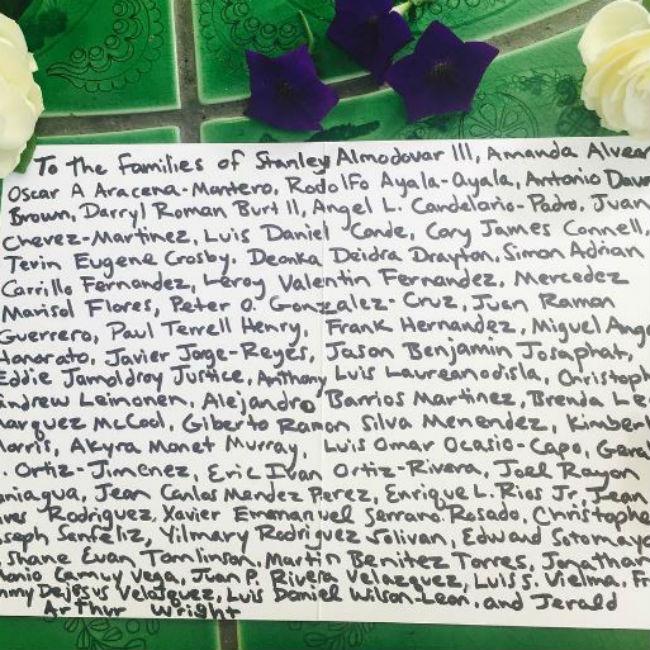 To the Families of Stanley Almodovar III, Amanda Alvear
Oscar A Aracena-Montero, Rodolfo Ayala-ayala, Antonio Dava
Brown, Darryl Roman Burt II, Angel L. Candelario-Padro, Juan
Chevez-Martinez, Luis Daniel Conde, Cory James Connell,
Tevin Eugene Crosby. Deonka Deidra Drayton, Simon Adrian
Carrillo Fernandez, Leroy Valentin Fernandez, Mercedez
Marisol Flores, Peter O. Gonzalez-Cruz, Juan Ramon
Guerrero, Paul Terrell Henry, Frank Hernandez, Miguel Ange
Honorato, Javier Jorge-Reyes, Jason Benjamin Josaphat,
Eddie Jamoldroy Justice, Anthony Luis Laureanodisla, Christoph
Andrew Leinonen, Alejandro Barrios Martinez, Brenda Le
Marquez McCool, Giberto Ramon Silva Menendez, Kimberl
Morris, Akyra Monet Murray, Luis Omar Ocasio-Capo, Geral
. Ortiz-Jimenez, Eric Ivan Ortiz-Rivera, Joel Rayon
aniagua, Jean Carlos Mendez Perez, Enrique L. Rios Jr, Jean
ives Rodriguez, Xavier Emmanuel Serrano Rosado, Christophe
oseph Sanfeliz, Yilmary Rodriguez Solivan, Edward Sotomayo
. Shane Evan Tomlinson, Martin Benitez Torres, Jonathan
tonio Camuy Vega, Juan P. Rivera Velazquez, Luis S. Vielma, Fr
mmy Dejesus Velazquez, Luis Daniel Wilson-Leon. and Jerald
Arthur Wright